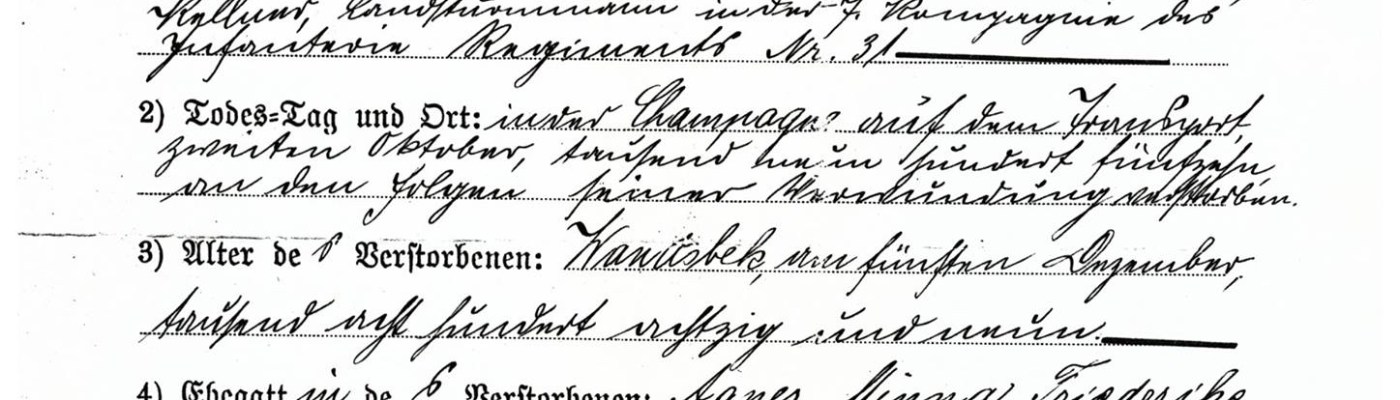 Kellner, Landsturmmann in der 7. Kompagnie des
Infanterie Regiments Nr. 31
2) Todes-Tag und Ort: in der Champagne auf dem Transport,
zweiten Oktober, tausend neun hundert fünfzehn
an den Folgen seiner Verwundung verstorben.
3) Alter des Verstorbenen: Wandsbek, am fünften Dezember,
tausend acht hundert achtzig und neun.
4) Ehegattin des Verstorbenen: Agnes Minna Friederike